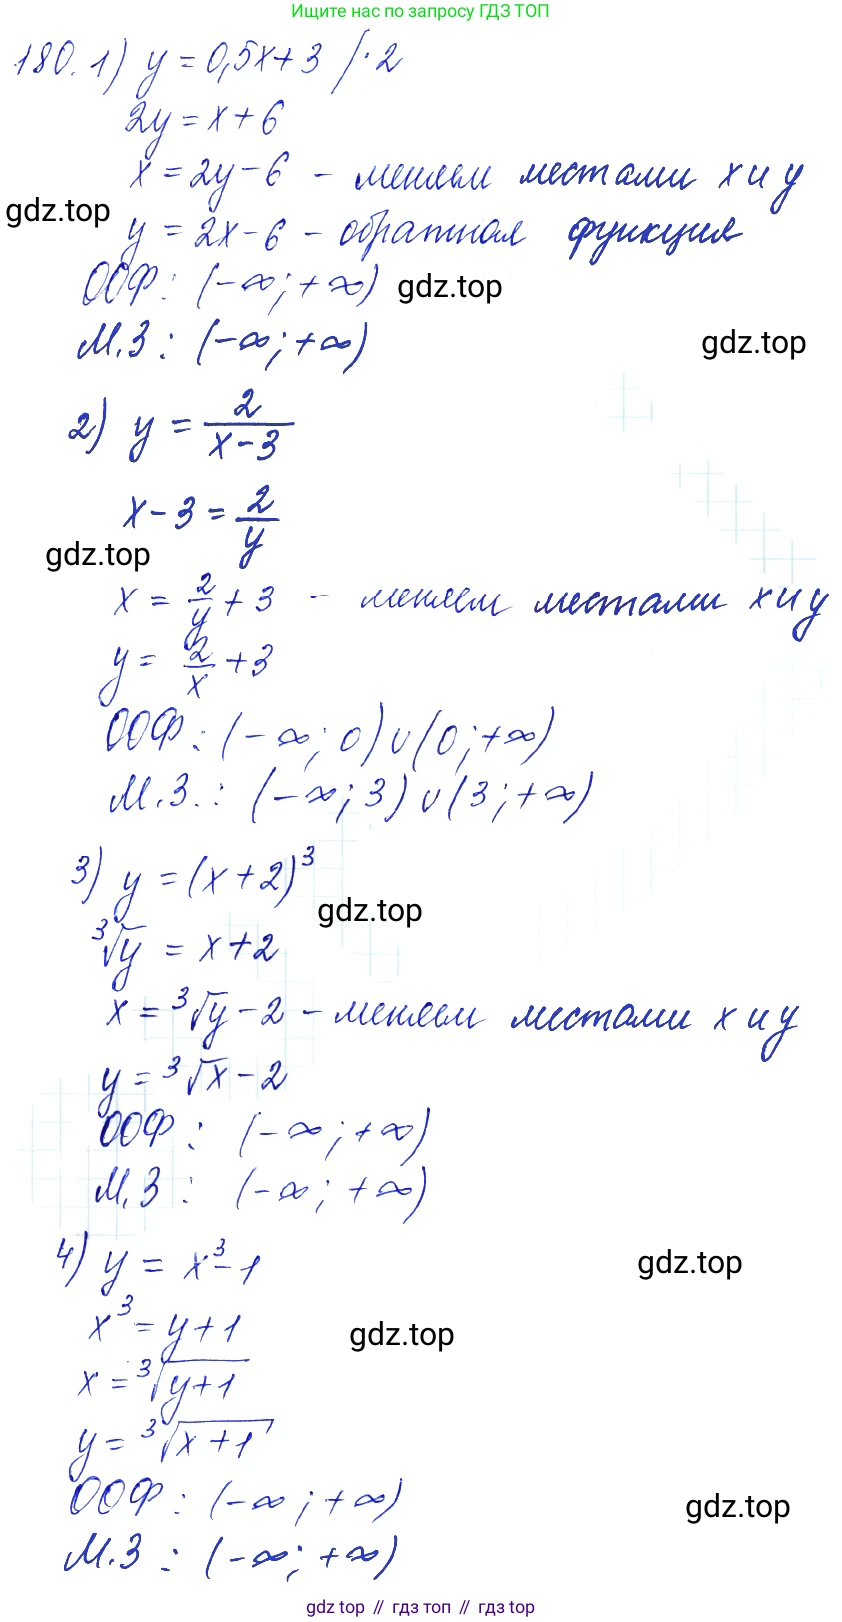 Ищите нас по запросу ГДЗ ТОП
180. 1) y = 0,5x + 3 |·2
2y = x + 6
x = 2y - 6 - меняем местами x и y
gdz.top
y = 2x - 6 - обратная функция
ООФ: (-∞; +∞)
gdz.top
М.З: (-∞; +∞)
gdz.top
2) y = 2/(x-3)
x - 3 = 2/y
gdz.top
x = 2/y + 3 - меняем местами x и y
y = 2/x + 3
ООФ: (-∞; 0) ∪ (0; +∞)
М.З.: (-∞; 3) ∪ (3; +∞)
3) y = (x+2)³
gdz.top
³√y = x + 2
x = ³√y - 2 - меняем местами x и y
y = ³√x - 2
ООФ: (-∞; +∞)
М.З: (-∞; +∞)
4) y = x³ - 1
gdz.top
x³ = y + 1
gdz.top
x = ³√(y+1)
y = ³√(x+1)
ООФ: (-∞; +∞)
gdz.top
М.З: (-∞; +∞)
gdz.top // гдз топ // gdz top